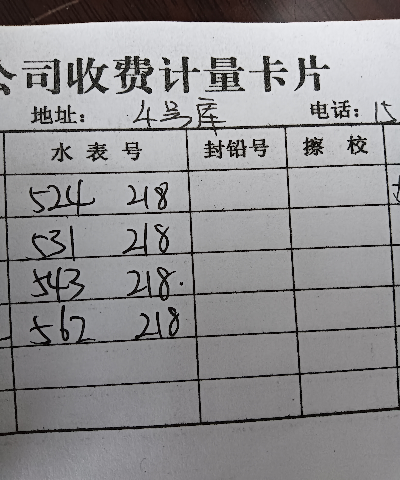 公司收费计量卡片
地址： 4号库 电话：15
水表号 封铅号 擦校
524 218
531 218
543 218.
562 218